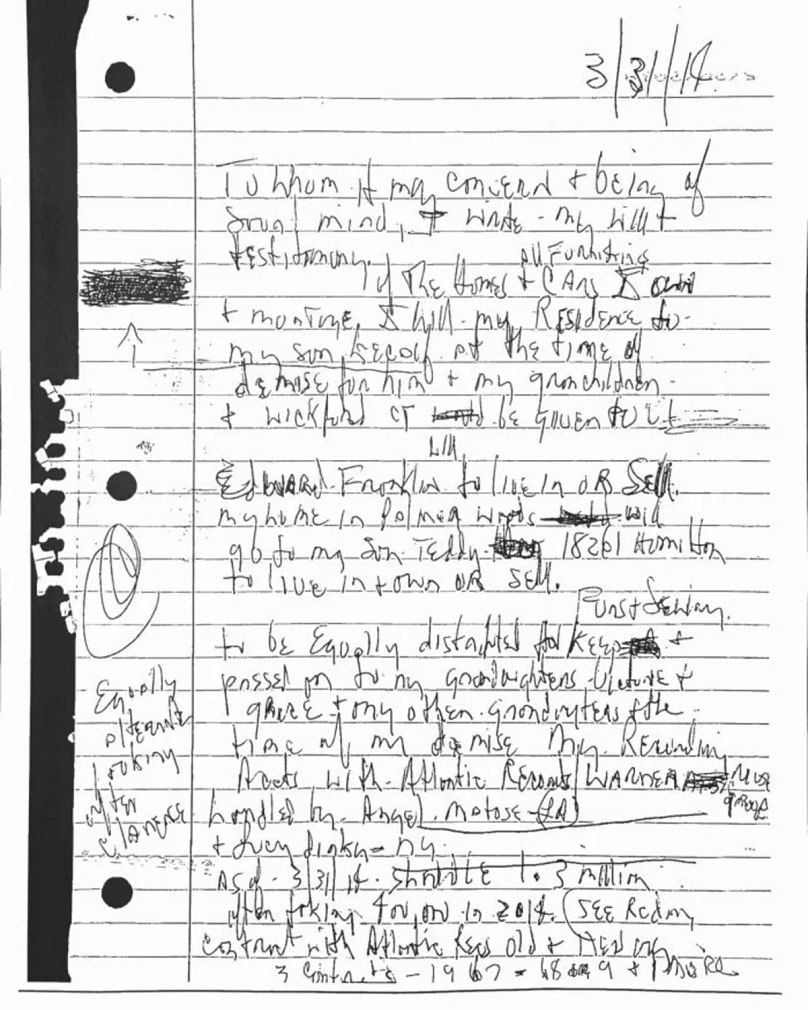 3/31/14
To whom it may concern + being of
sound mind, I write my will +
testitimony.
all Furnishing
of The Homes + CARs I own
+ mortgage. I will my Residence to
my son Kecalf at the time of
demise for him + my granchildren
+ wickford CT be given to
will
Edward Franklin to live in OR Sell.
my home in Palmer Woods will
go to my Son Teddy 18261 Hamilton
to live in + own OR SELL.
Furs + Jewlry
to be Equally distributed for keep +
passed on to my grandaughters Victorie +
grace + my other grandauters + the
time of my demise My Recording
Accts with Atlantic Records/WARNER Music
group
handled by Angel (LA)
+ NY.
As of 3/31/14 1.3 million
after taking in 2014. (SEE
contract with Atlantic Recs Old + New
3 Contracts - 1967 - 68 + more
Equally
alternate
taking
after
clarence